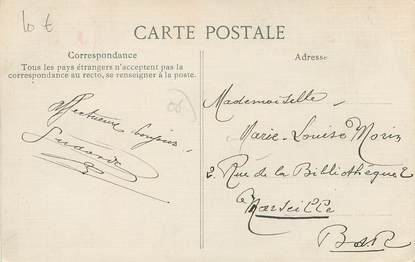 10 €
CARTE POSTALE
Correspondance
Tous les pays étrangers n'acceptent pas la
correspondance au recto, se renseigner à la poste.
Adresse
Affectueux bonjour
Mademoiselle
Marie-Louise Morin
2. Rue de la Bibliothèque 2
Marseille
B d R